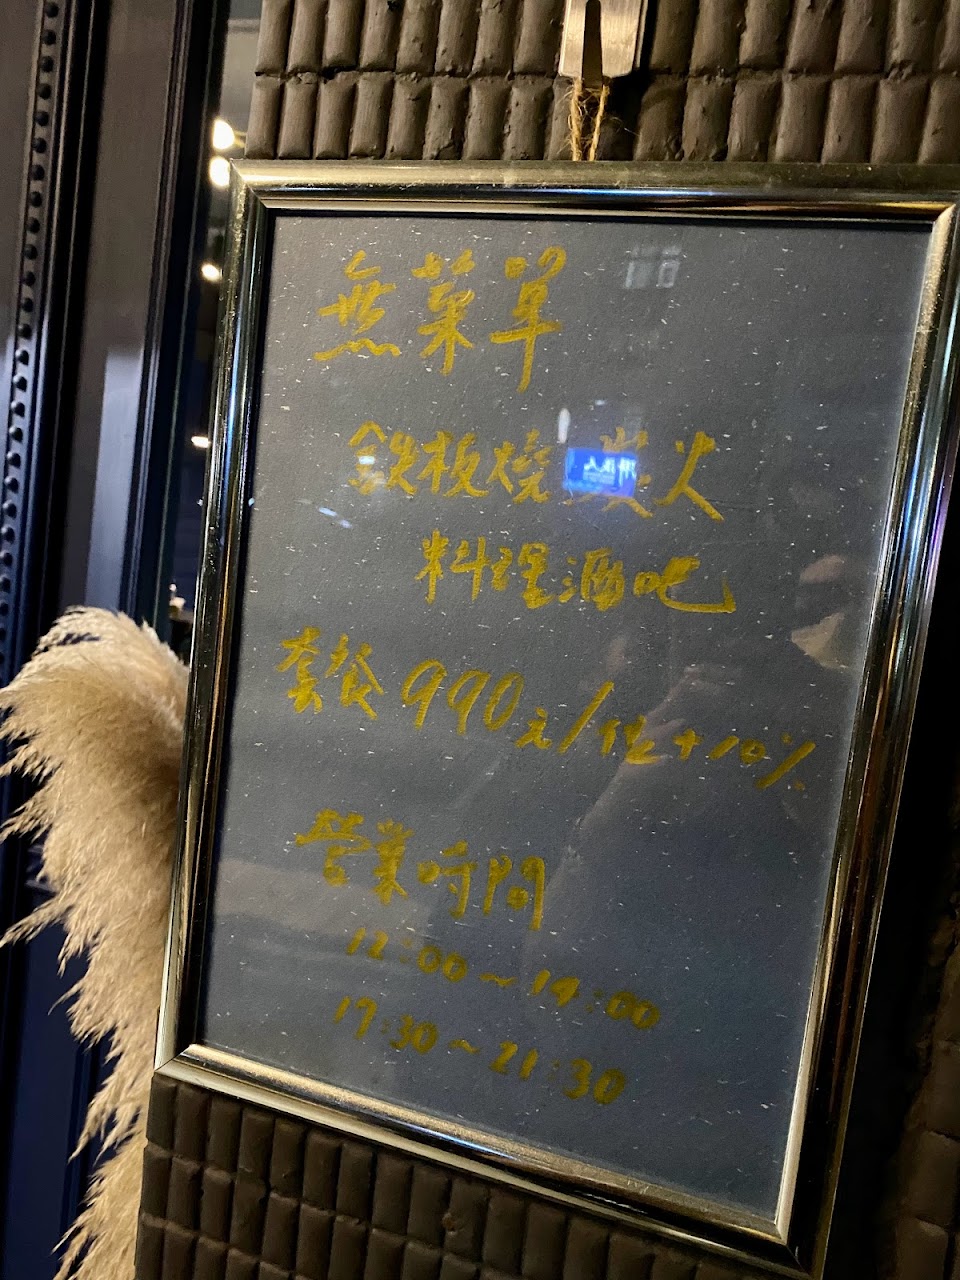 無菜單
鉄板燒炭火
料理酒吧
套餐990元/位+10%
營業時間
12:00~14:00
17:30~21:30